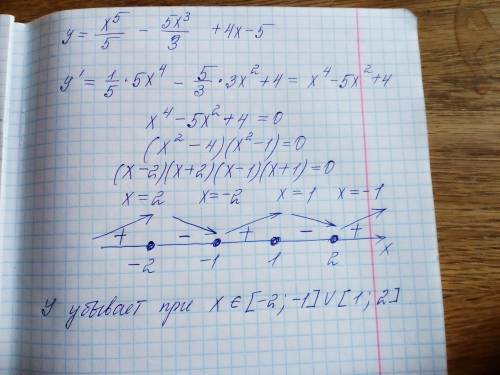 y = x⁵/5 - 5x³/3 + 4x-5
y' = 1/5 · 5x⁴ - 5/3 · 3x² + 4 = x⁴-5x²+4
x⁴-5x²+4=0
(x²-4)(x²-1)=0
(x-2)(x+2)(x-1)(x+1)=0
x=2 x=-2 x=1 x=-1
+ - + - +
-2 -1 1 2 x
y убывает при x ∈ [-2; -1] ∪ [1; 2]